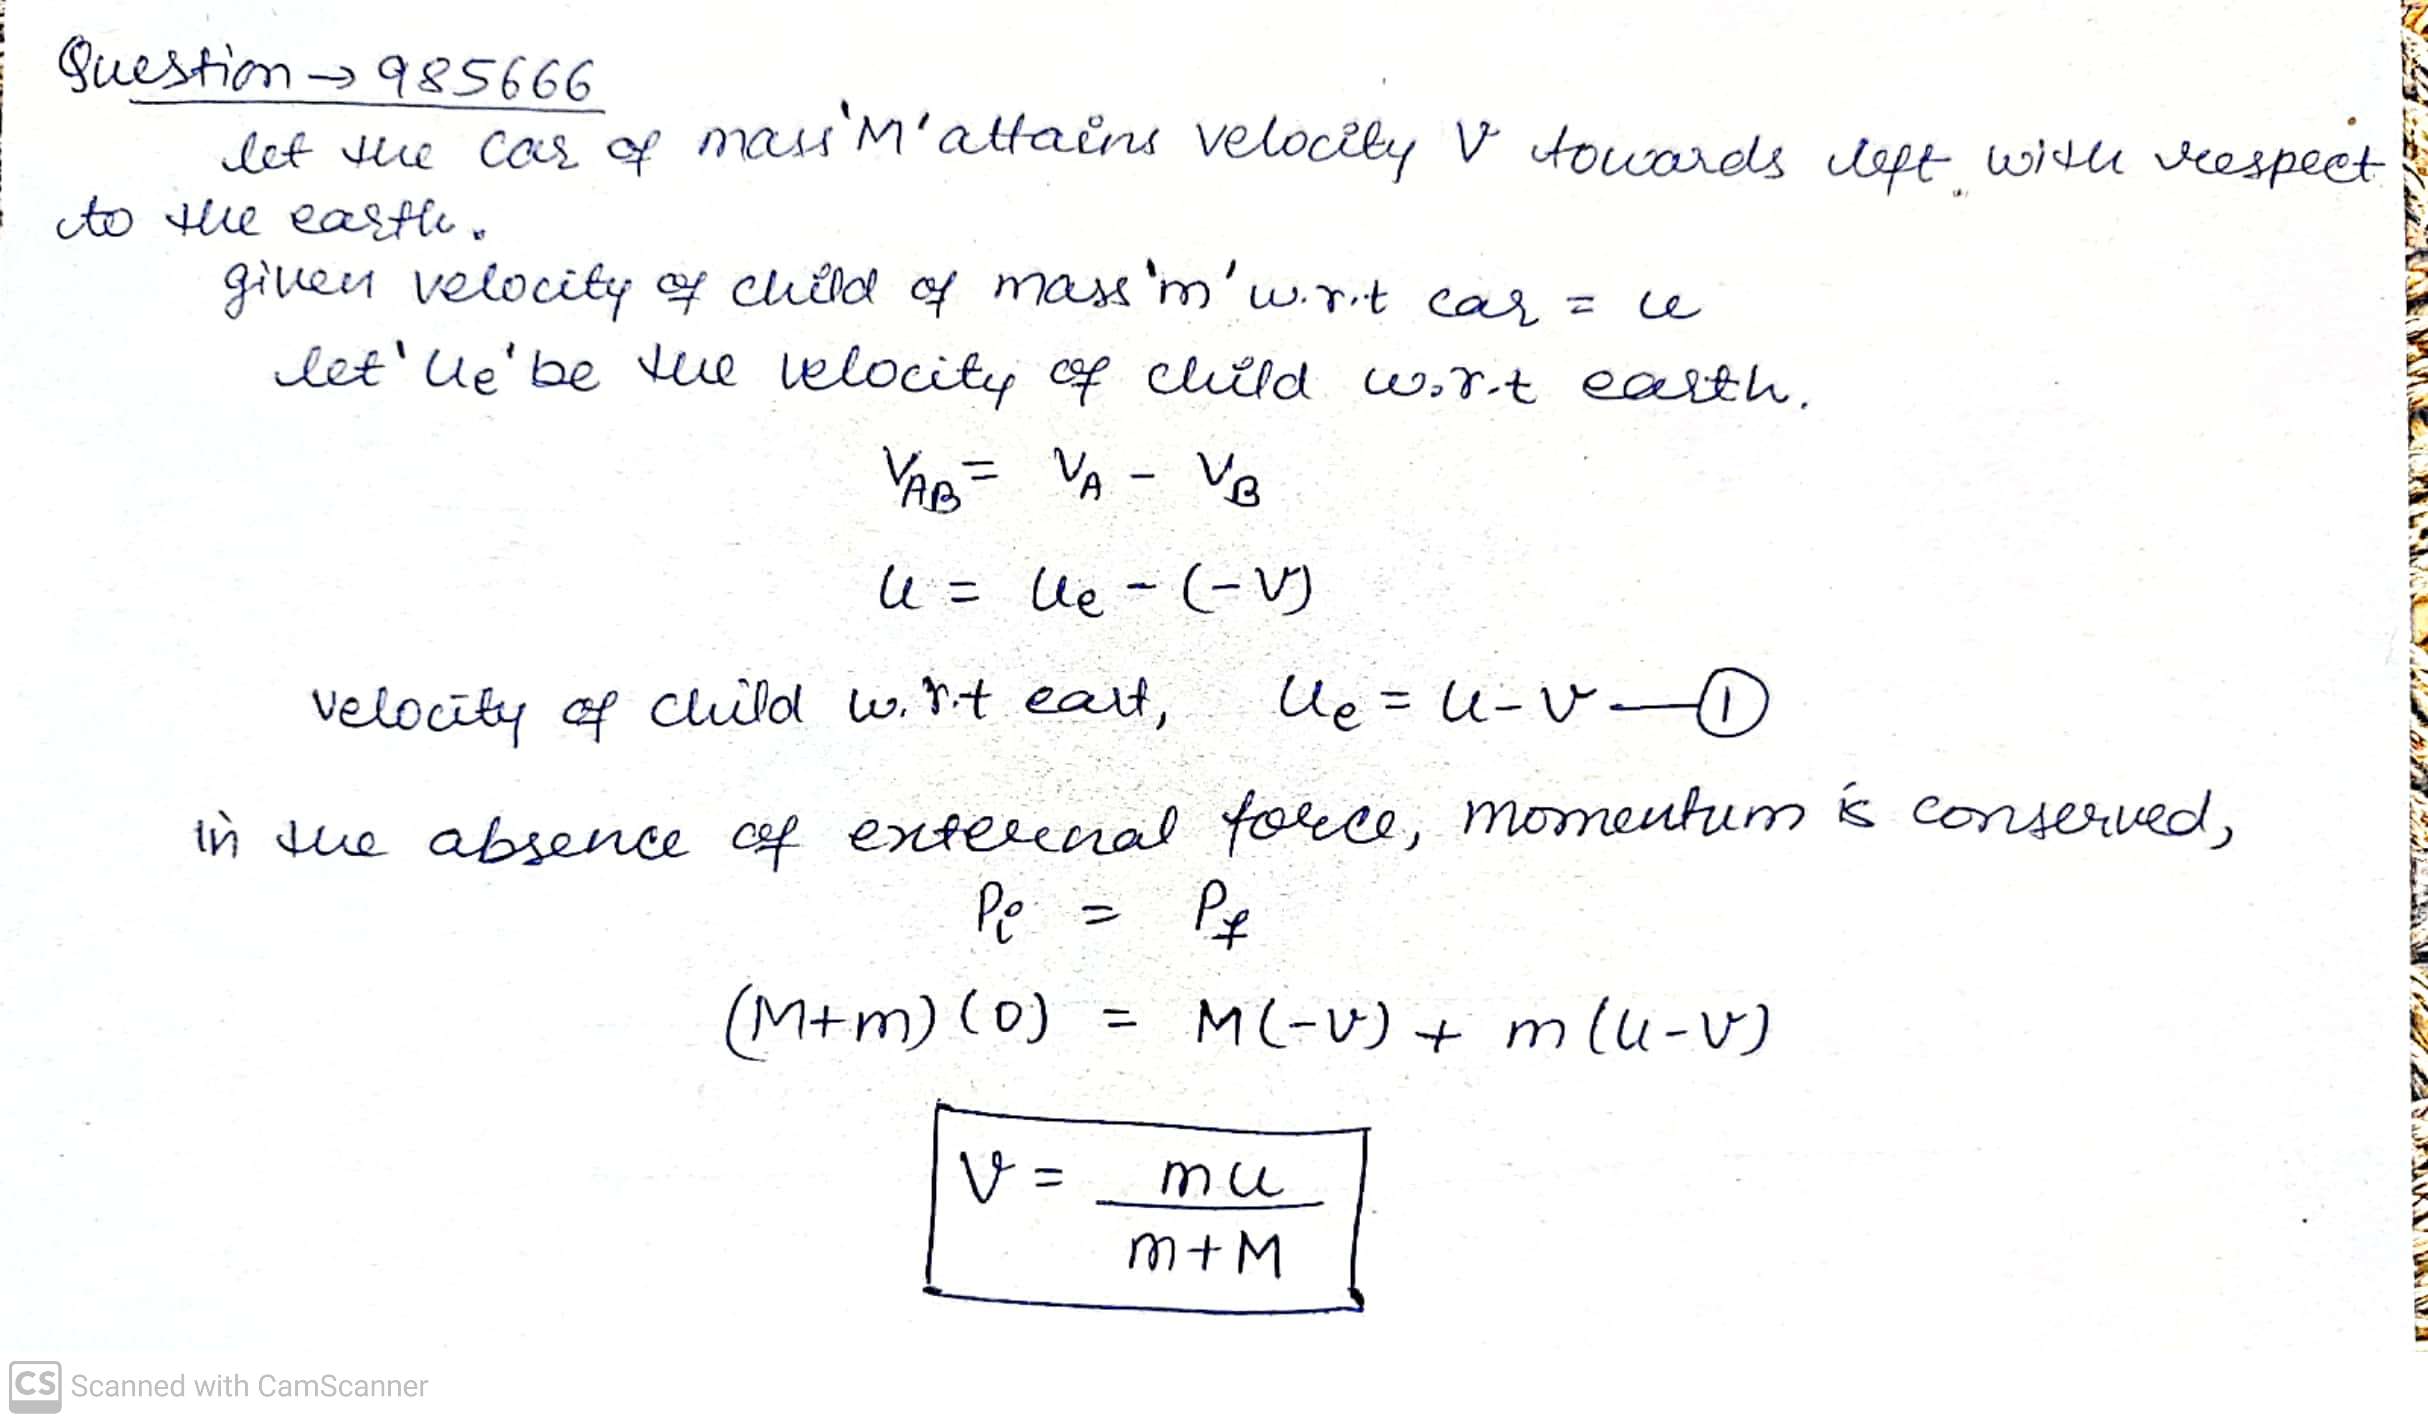 Question → 985666
let the car of mass 'M' attains velocity V towards left with respect
to the earth.
given velocity of child of mass 'm' w.r.t car = u
let 'Ue' be the velocity of child w.r.t earth.
VAB = VA - VB
u = Ue - (-V)
velocity of child w.r.t eart, Ue = U-V — ①
in the absence of external force, momentum is conserved,
Pi = Pf
(M+m) (0) = M(-V) + m(U-V)
V = mu
m+M
CS Scanned with CamScanner